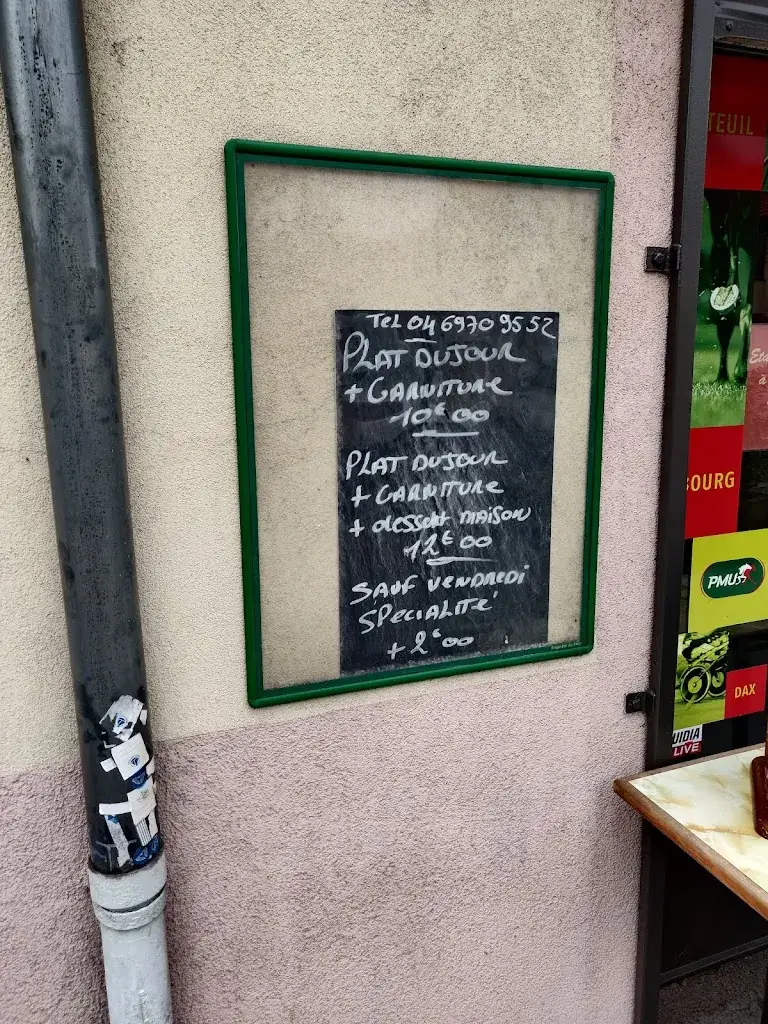 Tel 04 69 70 95 52
PLAT DU JOUR
+ GARNITURE
10€00
PLAT DU JOUR
+ GARNITURE
+ dessert MAISON
12€00
SAUF VENDREDI
SPECIALITÉ
+ 2€00
TEUIL
BOURG
PMU
DAX
UIDIA
LIVE